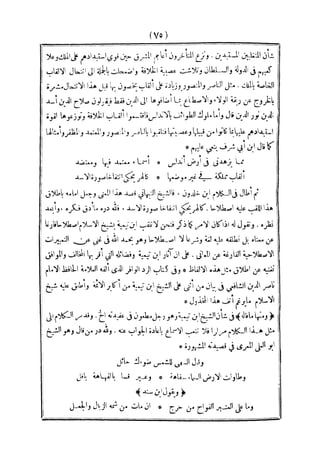 (٧٥)
شأن المتغلبين المستبدين . ونزع المتأخرون أعاجم المشرق حين قوي استبدادهم على الملك وعلا
كعبهم في الدولة والسلطان وتلاشت عصبية الخلافة واضمحلت بالجملة الى انتحال الألقاب
الخاصة بالملك . مثل الناصر والمنصور وزيادة على ألقاب يختصون بها قبل هذا الانتحال مشعرة
بالخروج عن ربقة الولاء والاصطناع بما أضافوها الى الدين فقط فيقولون صلاح الدين أسد
الدين نور الدين قال وأما ملوك الطوائف بالاندلس فاقتسموا ألقاب الخلافة وتوزعوها لقوة
استبدادهم عليها بما كانوا من قبيلها وعصبيتها فتلقبوا بالناصر والمنصور والمعتمد والمظفر وأمثالها
كما قال ابن أبي شرف ينعي عليهم *
مما يزهدني في أرض أندلس * أسماء معتمد فيها ومعتضد
ألقاب مملكة في غير موضعها * كالهر يحكي انتفاخا صورة الاسد
ثم أطال في الكلام ابن خلدون * فالشيخ النبهاني قصد هذا المعنى وجعل امامه باطلاق
هذا اللقب عليه اصطلاحا . كالهر يحكي انتفاخا صورة الاسد . فلله دره ما أدق فكره . وأبعد
نظره . ونقول له اذا كان الامر كما ذكر فمن لقب ابن تيمية بشيخ الاسلام اصطلاحا فارغا
عن معناه بل نطلقه عليه لغة وشرعا لا اصطلاحا وهو بحمد الله في غنى عن التعبيرات
الاصطلاحية الفارغة عن المعاني . على ان آثار ابن تيمية وفضائله التي أقر بها المخالف والموافق
تغنيه عن اطلاق مثل هذه الالفاظ * وفي كتاب الرد الوافر الذي ألفه العلامة الحافظ الامام
ناصر الدين الشافعي في بيان من أثنى على الشيخ ابن تيمية من أكابر الائمة وأطلق عليه شيخ
الاسلام ما يرغم أنف هذا المخذول *
﴿ ومنها ما قاله ﴾ في شأن الشيخ ابن تيمية وهو رجل مطعون في عقيدته الخ . وقد مر الكلام على
مثل هذا الكلام مرارا فلا نتعب الاسماع باعادة الجواب عنه . ولله در من قال وهو الشيخ
ابو العلى المعري في قصيدته المشهورة *
وقال السهى للشمس ضوءك حائل
وطاولت الارض السماء سفاهة * وعير قسا بالفهاهة باقل
﴿ ويقول ابن سند ﴾
وما على العنبر الفواح من حرج * ان مات من شمه الزبال والجعل